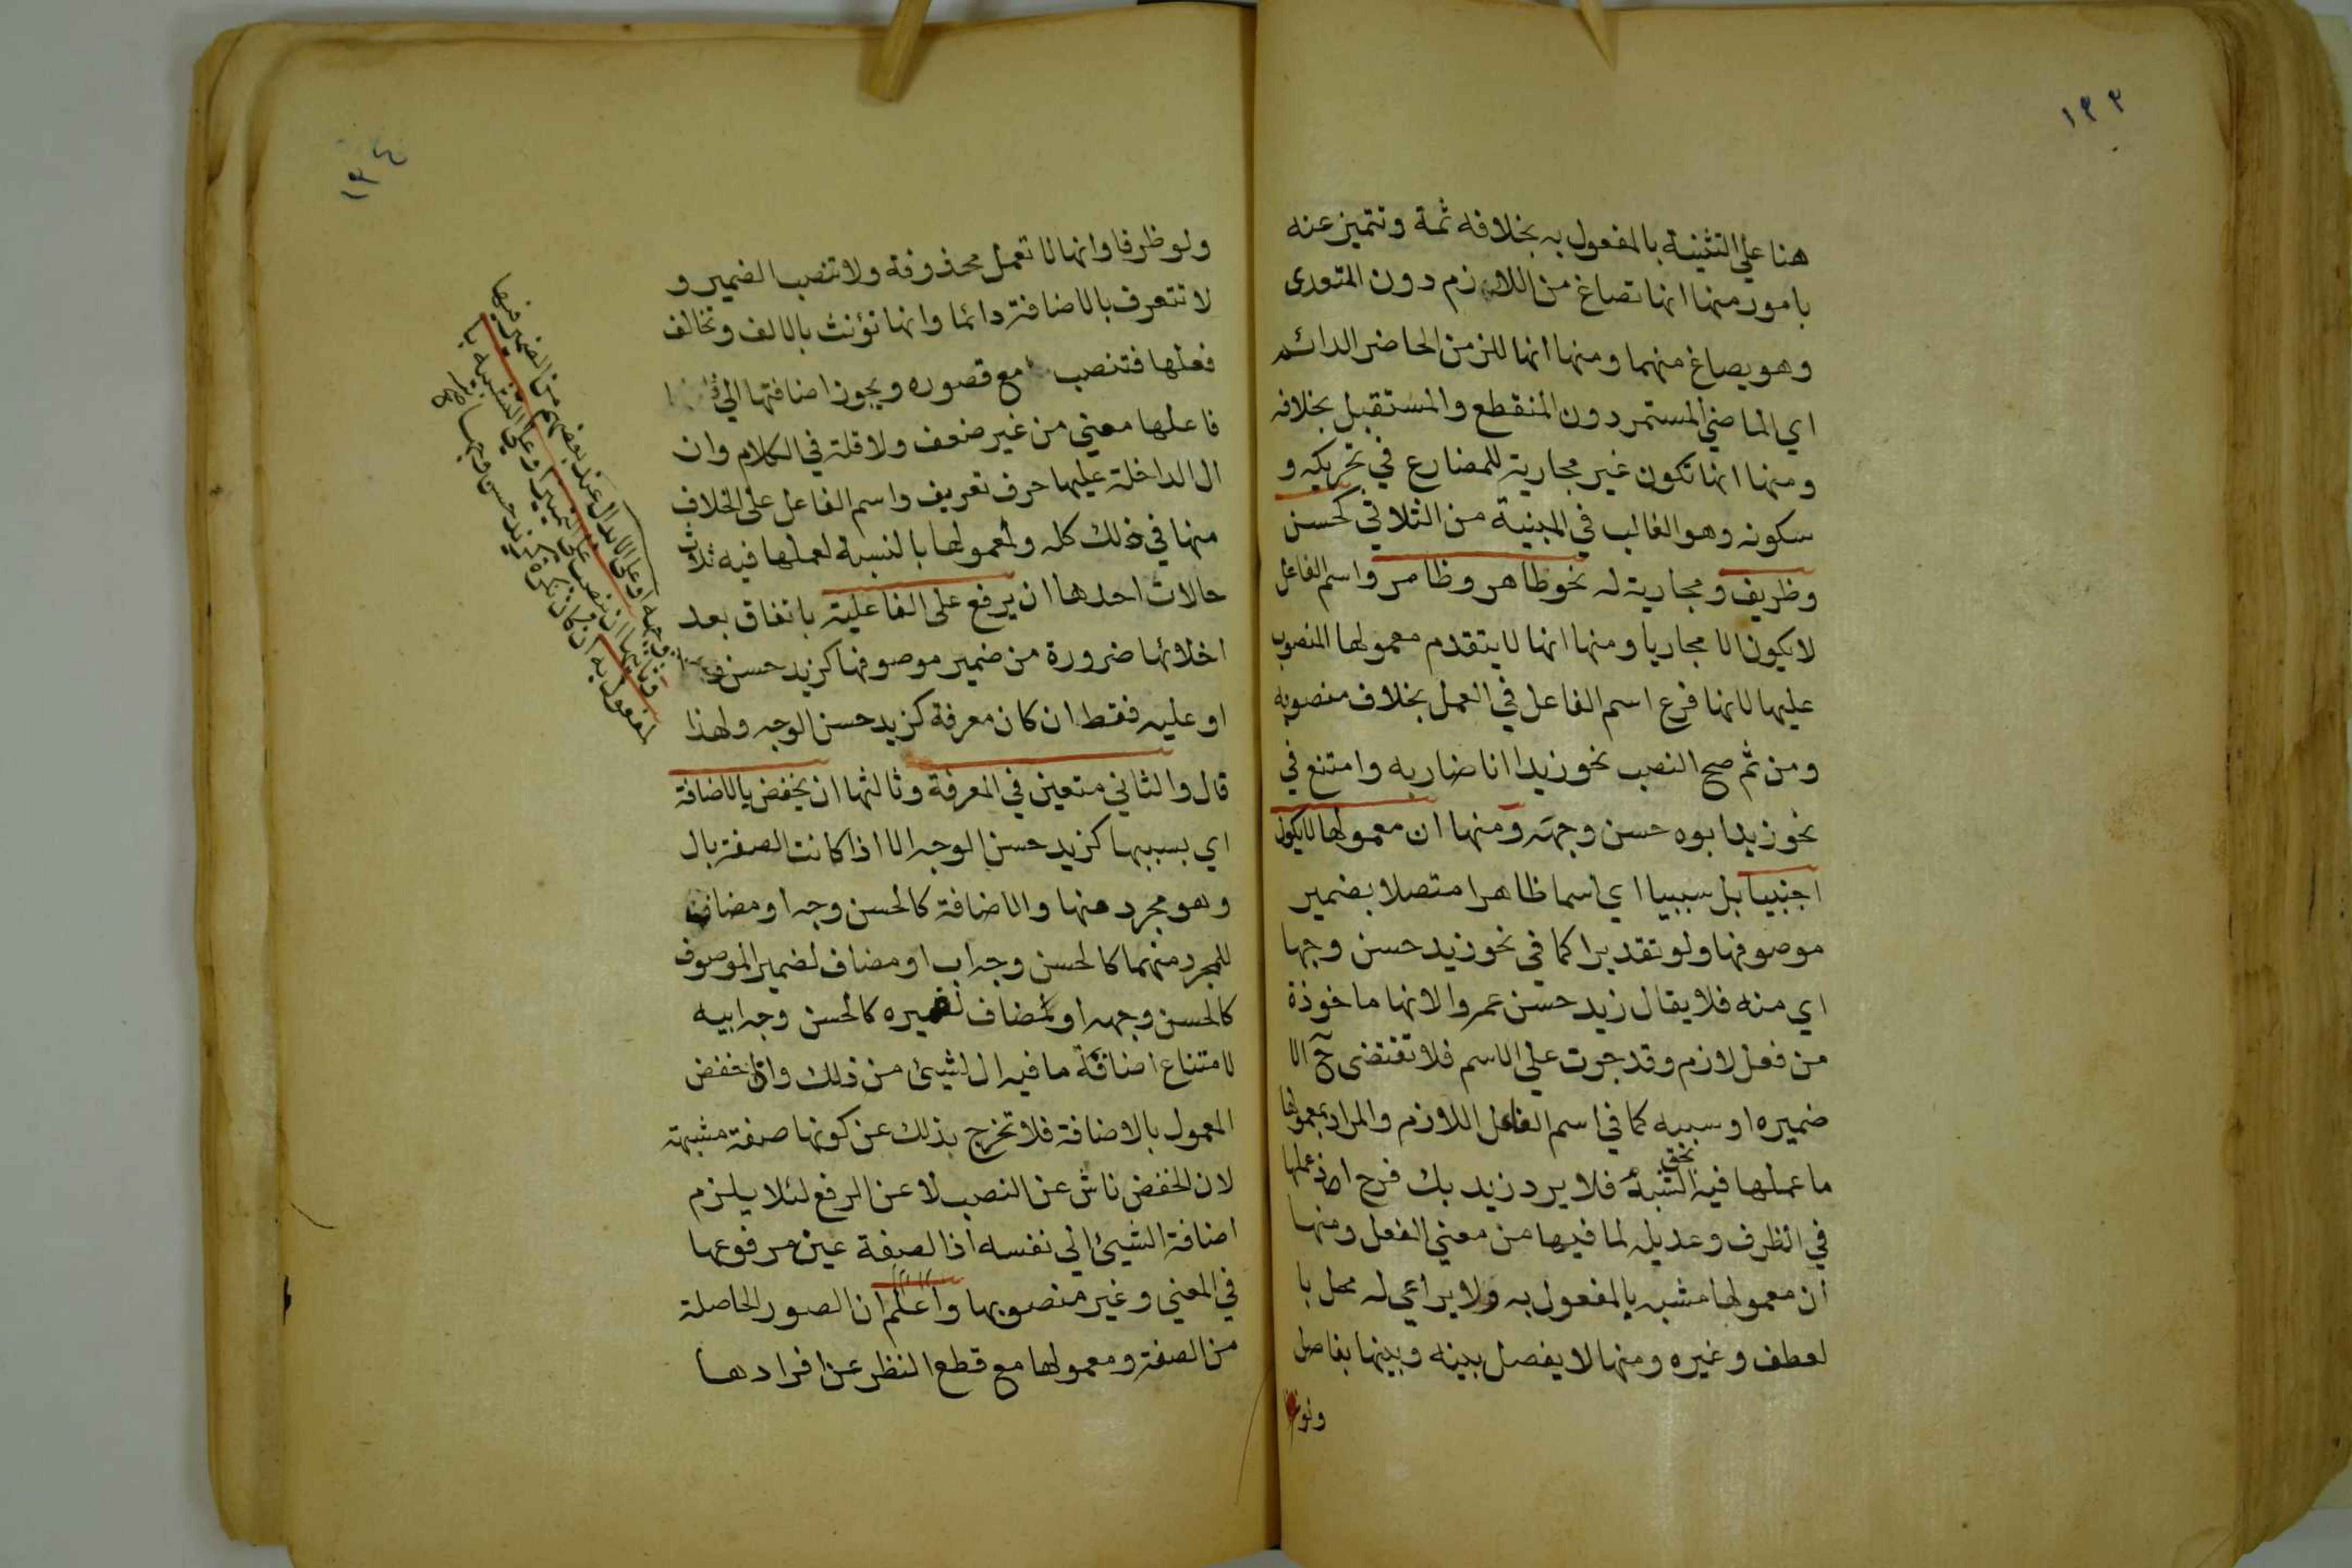 ١٣٣
هنا علي التثنية بالمفعول به بخلافه ثمة وتتميز عنه
بامور منها انها تصاغ من اللازم دون المتعدى
وهو يصاغ منهما ومنها انها للزمن الحاضر الدائم
اي الماضي المستمر دون المنقطع والمستقبل بخلافه
ومنها انها تكون غير مجارية للمضارع في تحريكه و
سكونه وهو الغالب في المبنية من الثلاثي كحسن
وظريف ومجارية له نحو طاهر وظامر واسم الفاعل
لا يكون الا مجاريا ومنها انها لا يتقدم معمولها المنصوب
عليها لانها فرع اسم الفاعل في العمل بخلاف منصوبه
ومن ثم صح النصب نحو زيدا انا ضاربه وامتنع في
نحو زيد ابوه حسن وجهه ومنها ان معمولها لا يكون
اجنبيا بل سببيا اي اسما ظاهرا متصلا بضمير
موصوفها ولو تقديرا كما في نحو زيد حسن وجها
اي منه فلا يقال زيد حسن عمروا لانها ماخوذة
من فعل لازم وقد جرت علي الاسم فلا تقتضى ح الا
ضميره او سببيه كما في اسم الفاعل اللازم والمراد بمعمولها
ما عملها فيه بحق الشبه فلا يرد زيد بك فرح اذ عملها
في الظرف وعديله لما فيها من معني الفعل ومنها
ان معمولها مشبه بالمفعول به ولا يراعي له محل با
لعطف وغيره ومنها لا يفصل بينه وبينها بفاصل
ولو
١٣٤
ولو ظرفا وانها لا تعمل محذوفة ولا تنصب الضمير و
لا تتعرف بالاضافة دائما وانها تؤنث بالالف وتخالف
فعلها فتنصب مع قصوره ويجوز اضافتها الي
فاعلها معني من غير ضعف ولا قلة في الكلام وان
ال الداخلة عليها حرف تعريف واسم الفاعل على الخلاف
منها في ذلك كله ولمعمولها بالنسبة لعملها فيه ثلاث
حالات احدها ان يرفع على الفاعلية باتفاق بعد
اخلائها ضرورة من ضمير موصوفها كزيد حسن وجهه
او عليه فقط ان كان معرفة كزيد حسن الوجه ولهذا
قال والثاني متعين في المعرفة وثالثها ان يخفض بالاضافة
اي بسببها كزيد حسن الوجه الا اذا كانت الصفة بال
وهو مجرد منها والاضافة كالحسن وجه او مضاف
للمجرد منهما كالحسن وجه اب او مضاف لضمير الموصوف
كالحسن وجهه او لمضاف لضميره كالحسن وجه ابيه
لامتناع اضافة ما فيه ال لشيئ من ذلك واذا خفض
المعمول بالاضافة فلا تخرج بذلك عن كونها صفة مشبهة
لان الخفض ناش عن النصب لا عن الرفع لئلا يلزم
اضافة الشيئ الي نفسه اذ الصفة عين مرفوعها
في المعني وغير منصوبها واعلم ان الصور الحاصلة
من الصفة ومعمولها مع قطع النظر عن افرادها
او على الابدال عند بعضهم من الضمير فيها
وثانيها ان ينصب على التمييز او على التشبيه با
لمفعول به ان كان نكرة كزيد حسن وجها